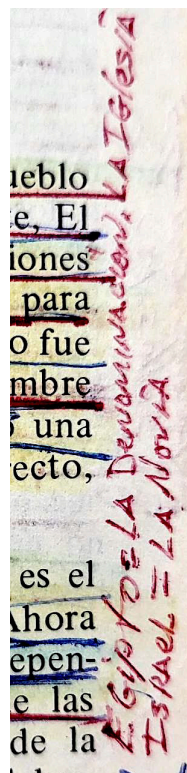 ueblo
e, El
iones
para
o fue
mbre
una
recto,
es el
Ahora
epen-
e las
de la
EGIPTO = LA DENOMINACION, LA IGLESIA
ISRAEL = LA NOVIA